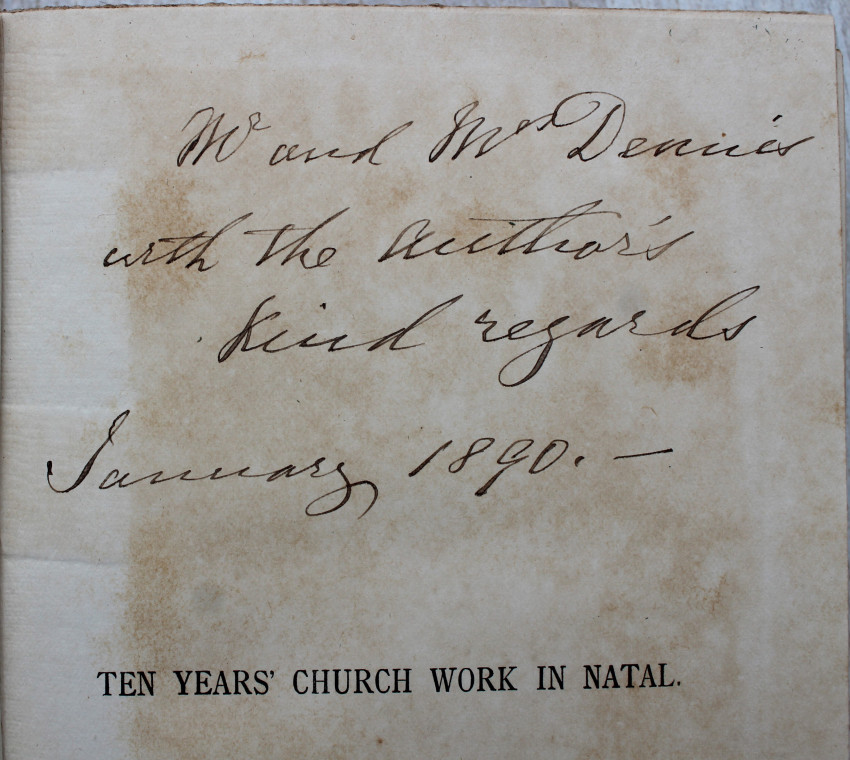 Mr and Mrs Dennis
with the Author's
Kind regards
January 1890. —
TEN YEARS' CHURCH WORK IN NATAL.